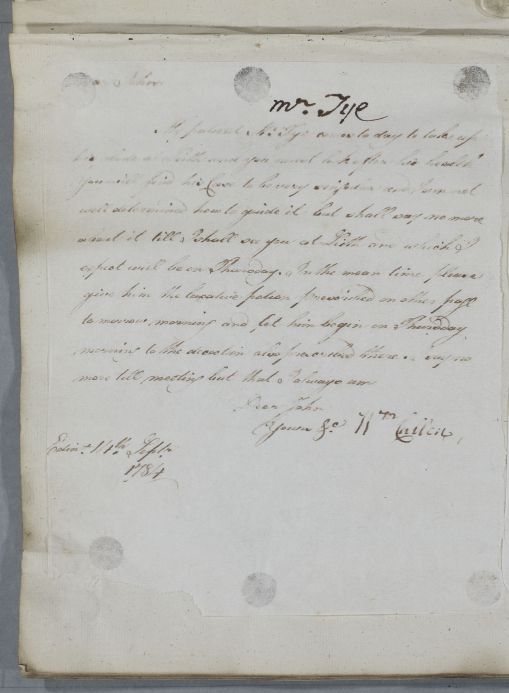 Dear John
Mr. Tye
My patient Mr. Tye comes to day to take up
his abode at Leith and you must look after his health
you will find his Case to be very and I am not
well determined how to guide it but shall say no more
about it till I shall see you at Leith and which I
expect will be on Thursday. In the mean time please
give him the laxative potion prescribed on other page
to morrow morning and let him begin on Thursday
morning to the decoction also prescribed there I say no
more till meeting but that I always am
Dear John
Yours &c Wm Cullen
Edinr. 14th Septr.
1784